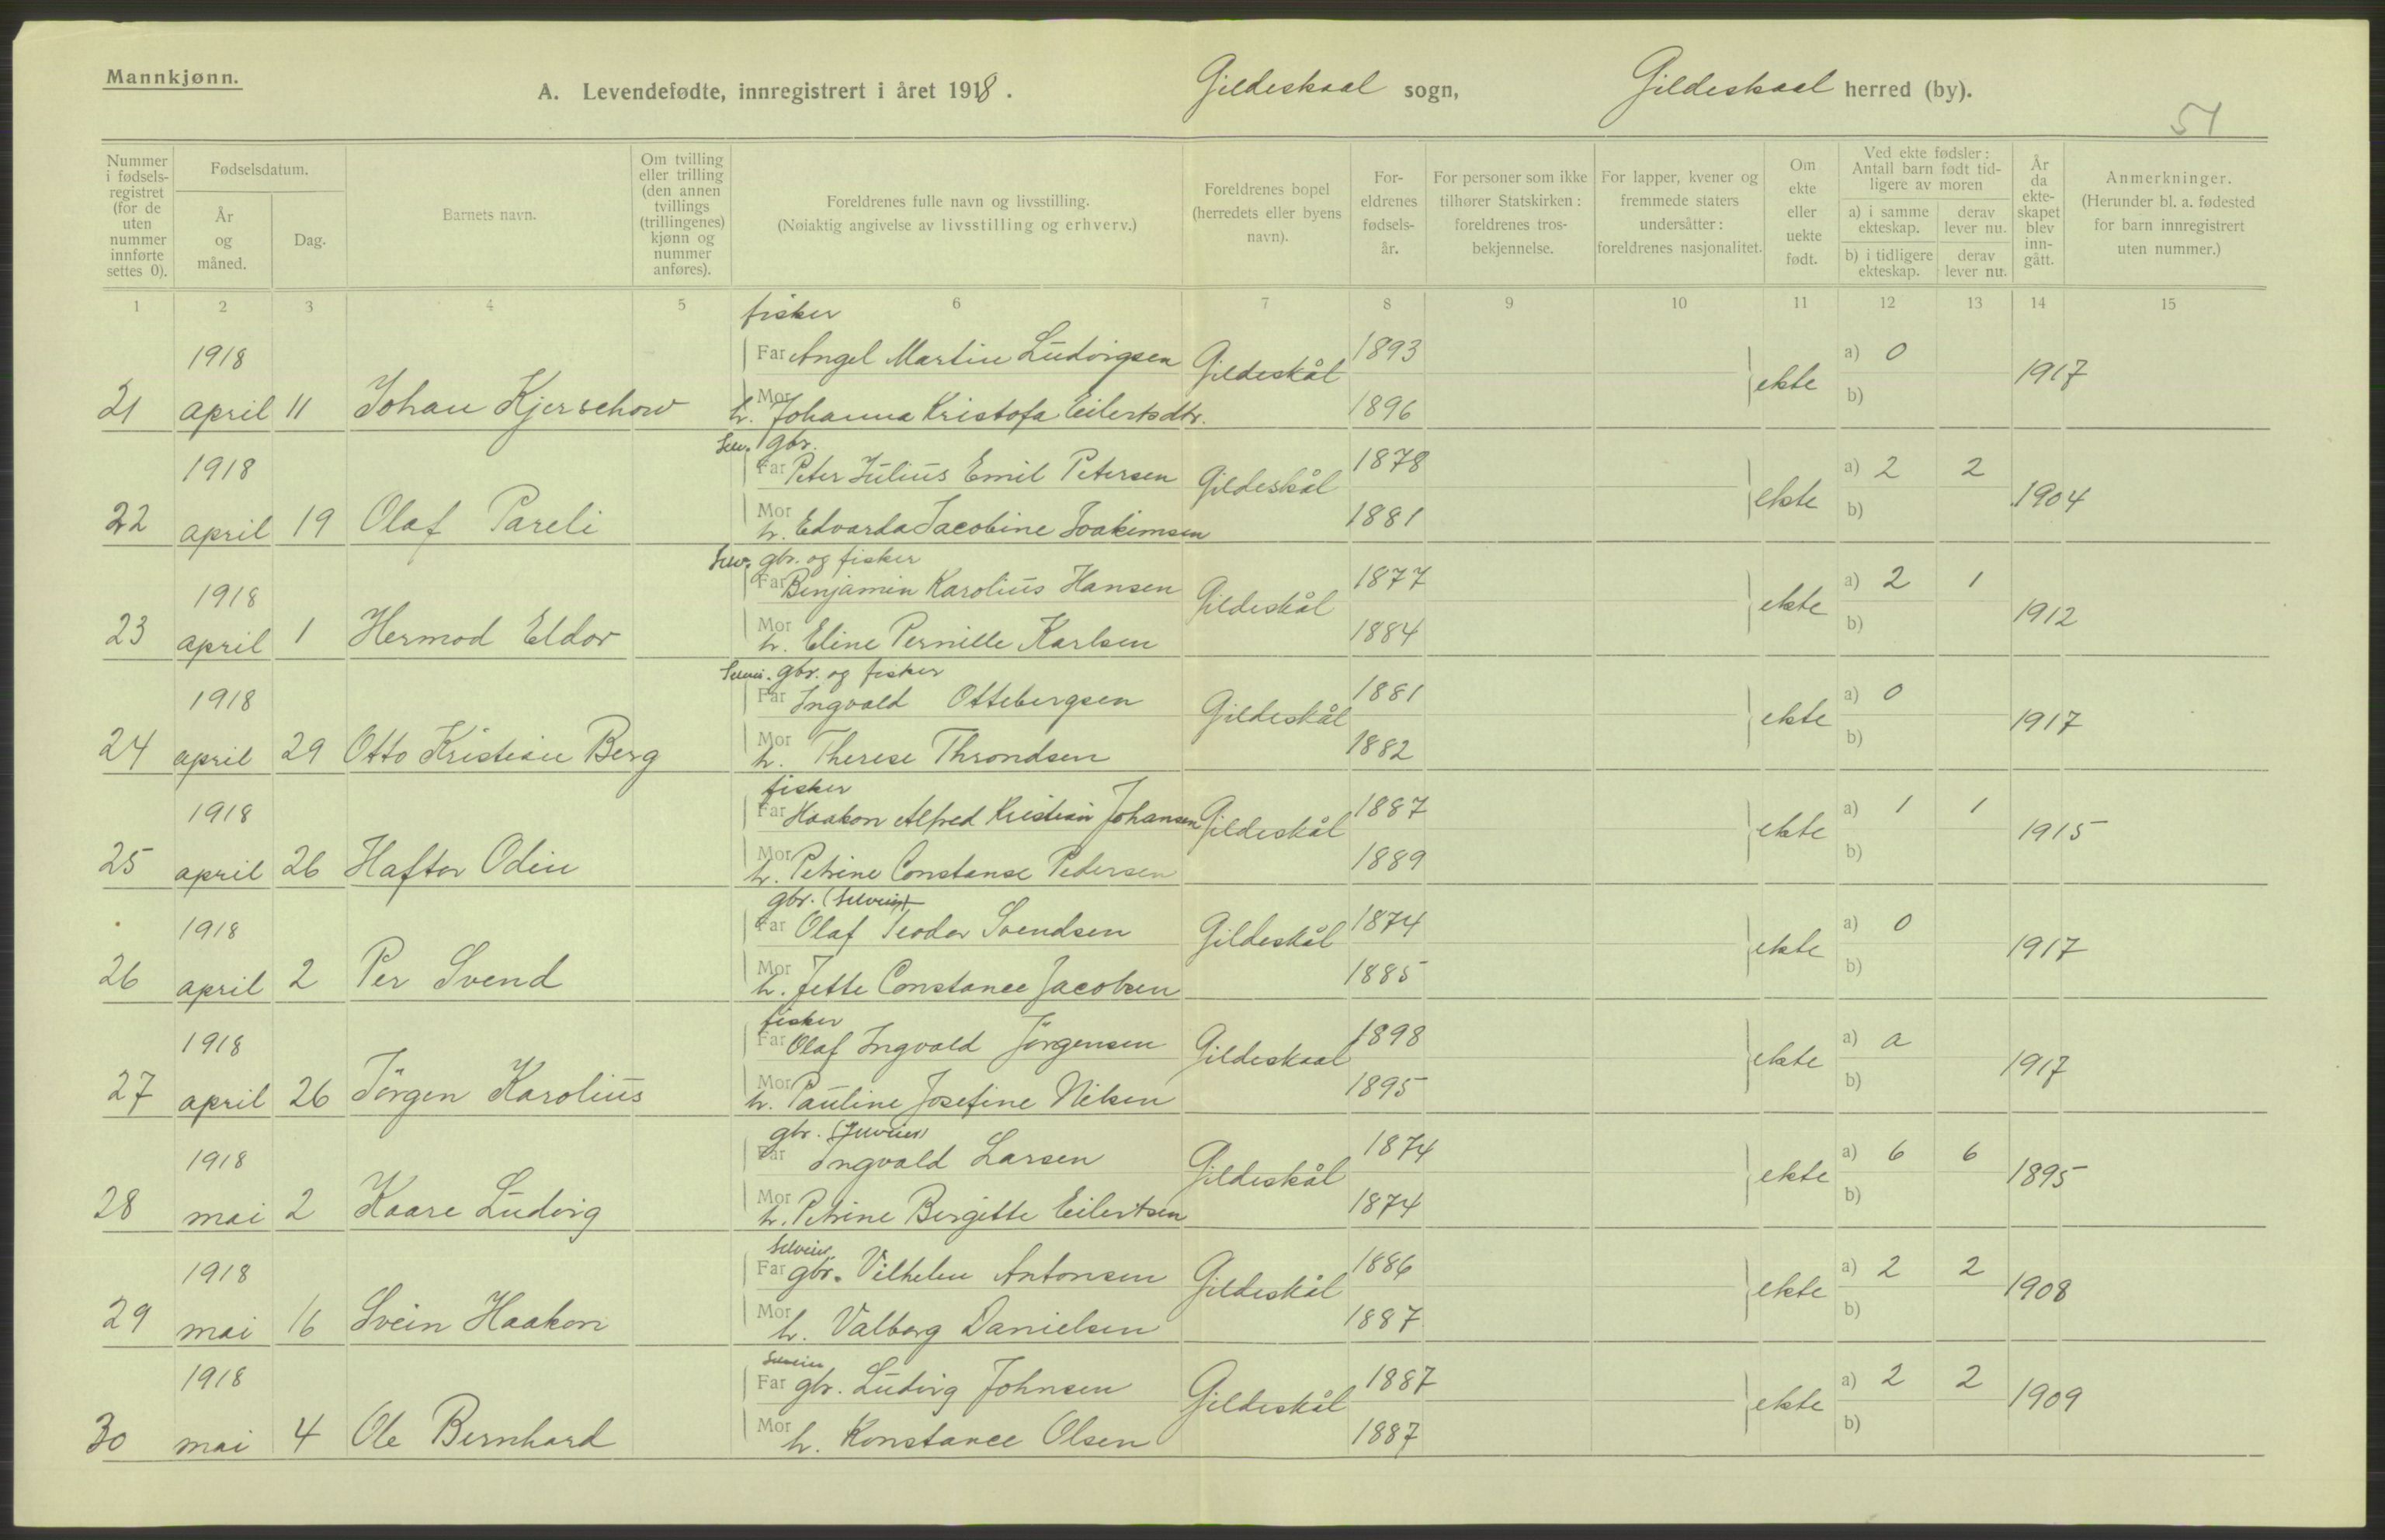 Mannkjønn.
A. Levendefødte, innregistrert i året 1918. Gildeskaal sogn, Gildeskaal herred (by).
51
Nummer i fødselsregistret (for de uten nummer innførte settes 0). Fødselsdatum. År og måned. Dag. Barnets navn. Om tvilling eller trilling (den annen tvillings (trillingenes) kjønn og nummer anføres). Foreldrenes fulle navn og livsstilling. (Nøiaktig angivelse av livsstilling og erhverv.) Foreldrenes bopel (herredets eller byens navn). Foreldrenes fødselsår. For personer som ikke tilhører Statskirken: foreldrenes trosbekjennelse. For lapper, kvener og fremmede staters undersåtter: foreldrenes nasjonalitet. Om ekte eller uekte født. Ved ekte fødsler: Antall barn født tidligere av moren a) i samme ekteskap. derav lever nu. b) i tidligere ekteskap. derav lever nu. År da ekteskapet blev inngått. Anmerkninger. (Herunder bl. a. fødested for barn innregistrert uten nummer.)
1 2 3 4 5 6 7 8 9 10 11 12 13 14 15
fisker
1918 Far Angel Martin Ludvigsen Gildeskål 1893 ekte a) 0 1917
21 april 11 Johan Kjerschow Mor h. Johanna Kristofa Eilertsdtr. 1896 b)
Selv. gbr.
1918 Far Peter Julius Emil Petersen Gildeskål 1878 ekte a) 2 2 1904
22 april 19 Olaf Pareli Mor h. Edvarda Jacobine Joakimsen 1881 b)
Selv. gbr. og fisker
1918 Far Benjamin Karolius Hansen Gildeskål 1877 ekte a) 2 1 1912
23 april 1 Hermod Eldor Mor h. Eline Pernille Karlsen 1884 b)
Selvei. gbr. og fisker
1918 Far Ingvald Ottebergsen Gildeskål 1881 ekte a) 0 1917
24 april 29 Otto Kristian Berg Mor h. Therese Throndsen 1882 b)
fisker
1918 Far Haakon Alfred Kristian Johansen Gildeskål 1887 ekte a) 1 1 1915
25 april 26 Haftor Odin Mor h. Petrine Constanse Pedersen 1889 b)
gbr. (selveier)
1918 Far Olaf Teodor Svendsen Gildeskål 1874 ekte a) 0 1917
26 april 2 Per Svend Mor h. Jette Constance Jacobsen 1885 b)
fisker
1918 Far Olaf Ingvald Jörgensen Gildeskaal 1898 ekte a) a 1917
27 april 26 Jörgen Karolius Mor h. Pauline Josefine Nilsen 1895 b)
gbr. (selveier)
1918 Far Ingvald Larsen Gildeskål 1874 ekte a) 6 6 1895
28 mai 2 Kaare Ludvig Mor h. Petrine Bergitte Eilertsen 1874 b)
Selveier
1918 Far gbr. Vilhelm Antonsen Gildeskål 1886 ekte a) 2 2 1908
29 mai 16 Svein Haakon Mor h. Valborg Danielsen 1887 b)
Selveier
1918 Far gbr. Ludvig Johnsen Gildeskål 1887 ekte a) 2 2 1909
30 mai 4 Ole Bernhard Mor h. Konstance Olsen 1887 b)